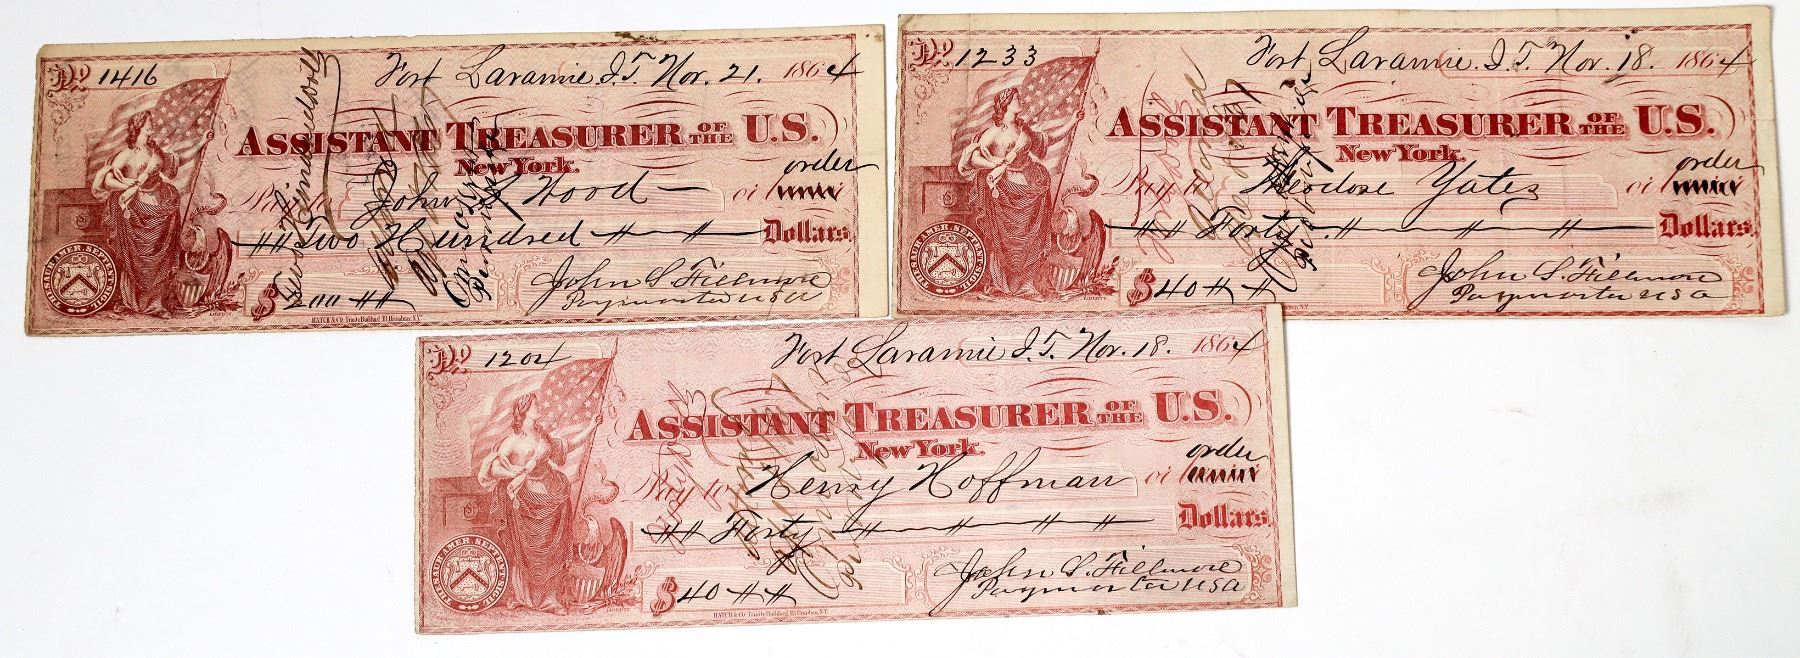 No 1416 Fort Laramie I.T. Nov. 21. 1864
ASSISTANT TREASURER OF THE U.S.
New York.
order
Pay to John S Wood or
Two Hundred Dollars
$ 200
John S. Fillmore
Paymaster USA
THESAUR. AMER. SEPTENT. SIGIL.
LIBERTY
HATCH & Co. Trinity Building 111 Broadway, N.Y.
No 1233 Fort Laramie. I.T. Nov. 18. 1864
ASSISTANT TREASURER OF THE U.S.
New York.
order
Pay to Theodose Yates or
Forty Dollars
$ 40
John S. Fillmore
Paymaster USA
THESAUR. AMER. SEPTENT. SIGIL.
LIBERTY
No 1204 Fort Laramie I.T. Nov. 18. 1864
ASSISTANT TREASURER OF THE U.S.
New York.
order
Pay to Henry Hoffman or
Forty Dollars
$ 40
John S. Fillmore
Paymaster USA
THESAUR. AMER. SEPTENT. SIGIL.
LIBERTY
HATCH & Co. Trinity Building 111 Broadway, N.Y.